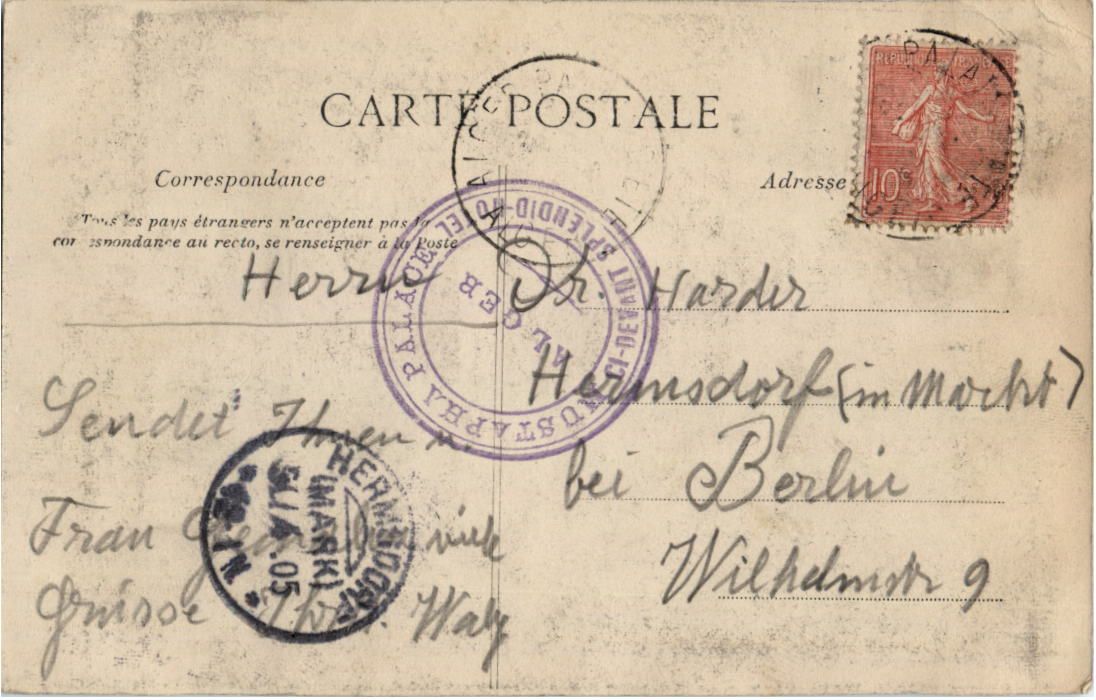 CARTE POSTALE
Correspondance
Adresse
Tous les pays étrangers n'acceptent pas la
correspondance au recto, se renseigner à la Poste
REPUBLIQUE FRANÇAISE
10
MUSTAPHA PALACE CI-DEVANT SPLENDID-HOTEL
ALGER
Herrn Dr. Harder
Hermsdorf (in Mark)
bei Berlin
Wilhelmstr 9
Sendet Ihnen u.
Frau viele
Grüsse Ihr
HERMSDORF
(MARK)
5.4.05